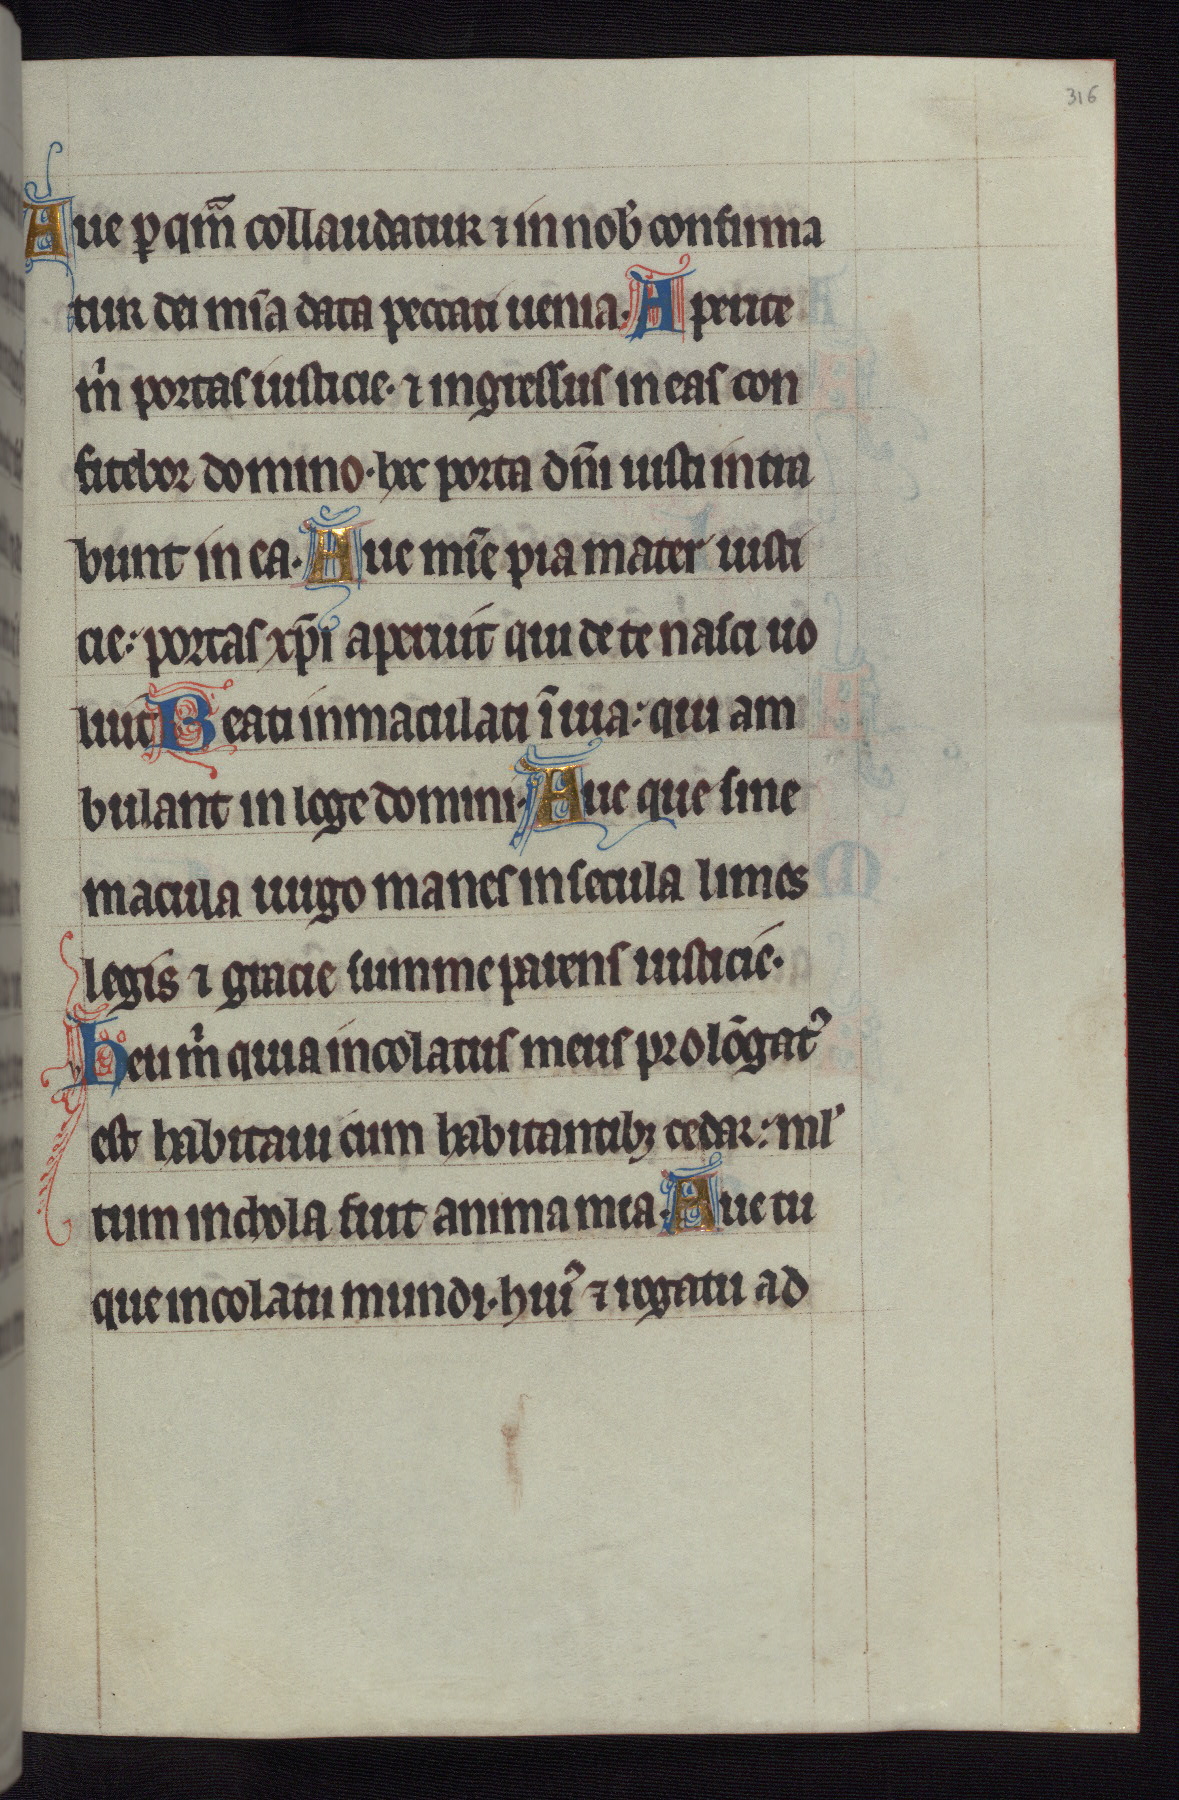 316
Aue ꝑ qm̄ collaudatur ⁊ in nob̾ confirma
tur dei mīa data peccati uenia. Aperite
m̍ portas iusticie. ⁊ ingressus in eas con
fitebor domino. hec porta dn̄i iusti intra
bunt in ea. Aue mīe pia mater iusti
cie: portas xp̄i aperuit qui de te nasci uo
luit Beati inmaculati ī uia: qui am
bulant in lege domini. Aue que sine
macula uirgo manes in secula limes
legis ⁊ gracie summe parens iusticie.
Heu m̍ quia incolatus meus prolōgat᷒
est habitaui cum habitantibꝫ cedar: ml̾
tum incola fuit anima mea. Aue tu
que incolatu mundi. hui᷒ ⁊ rogatu ad